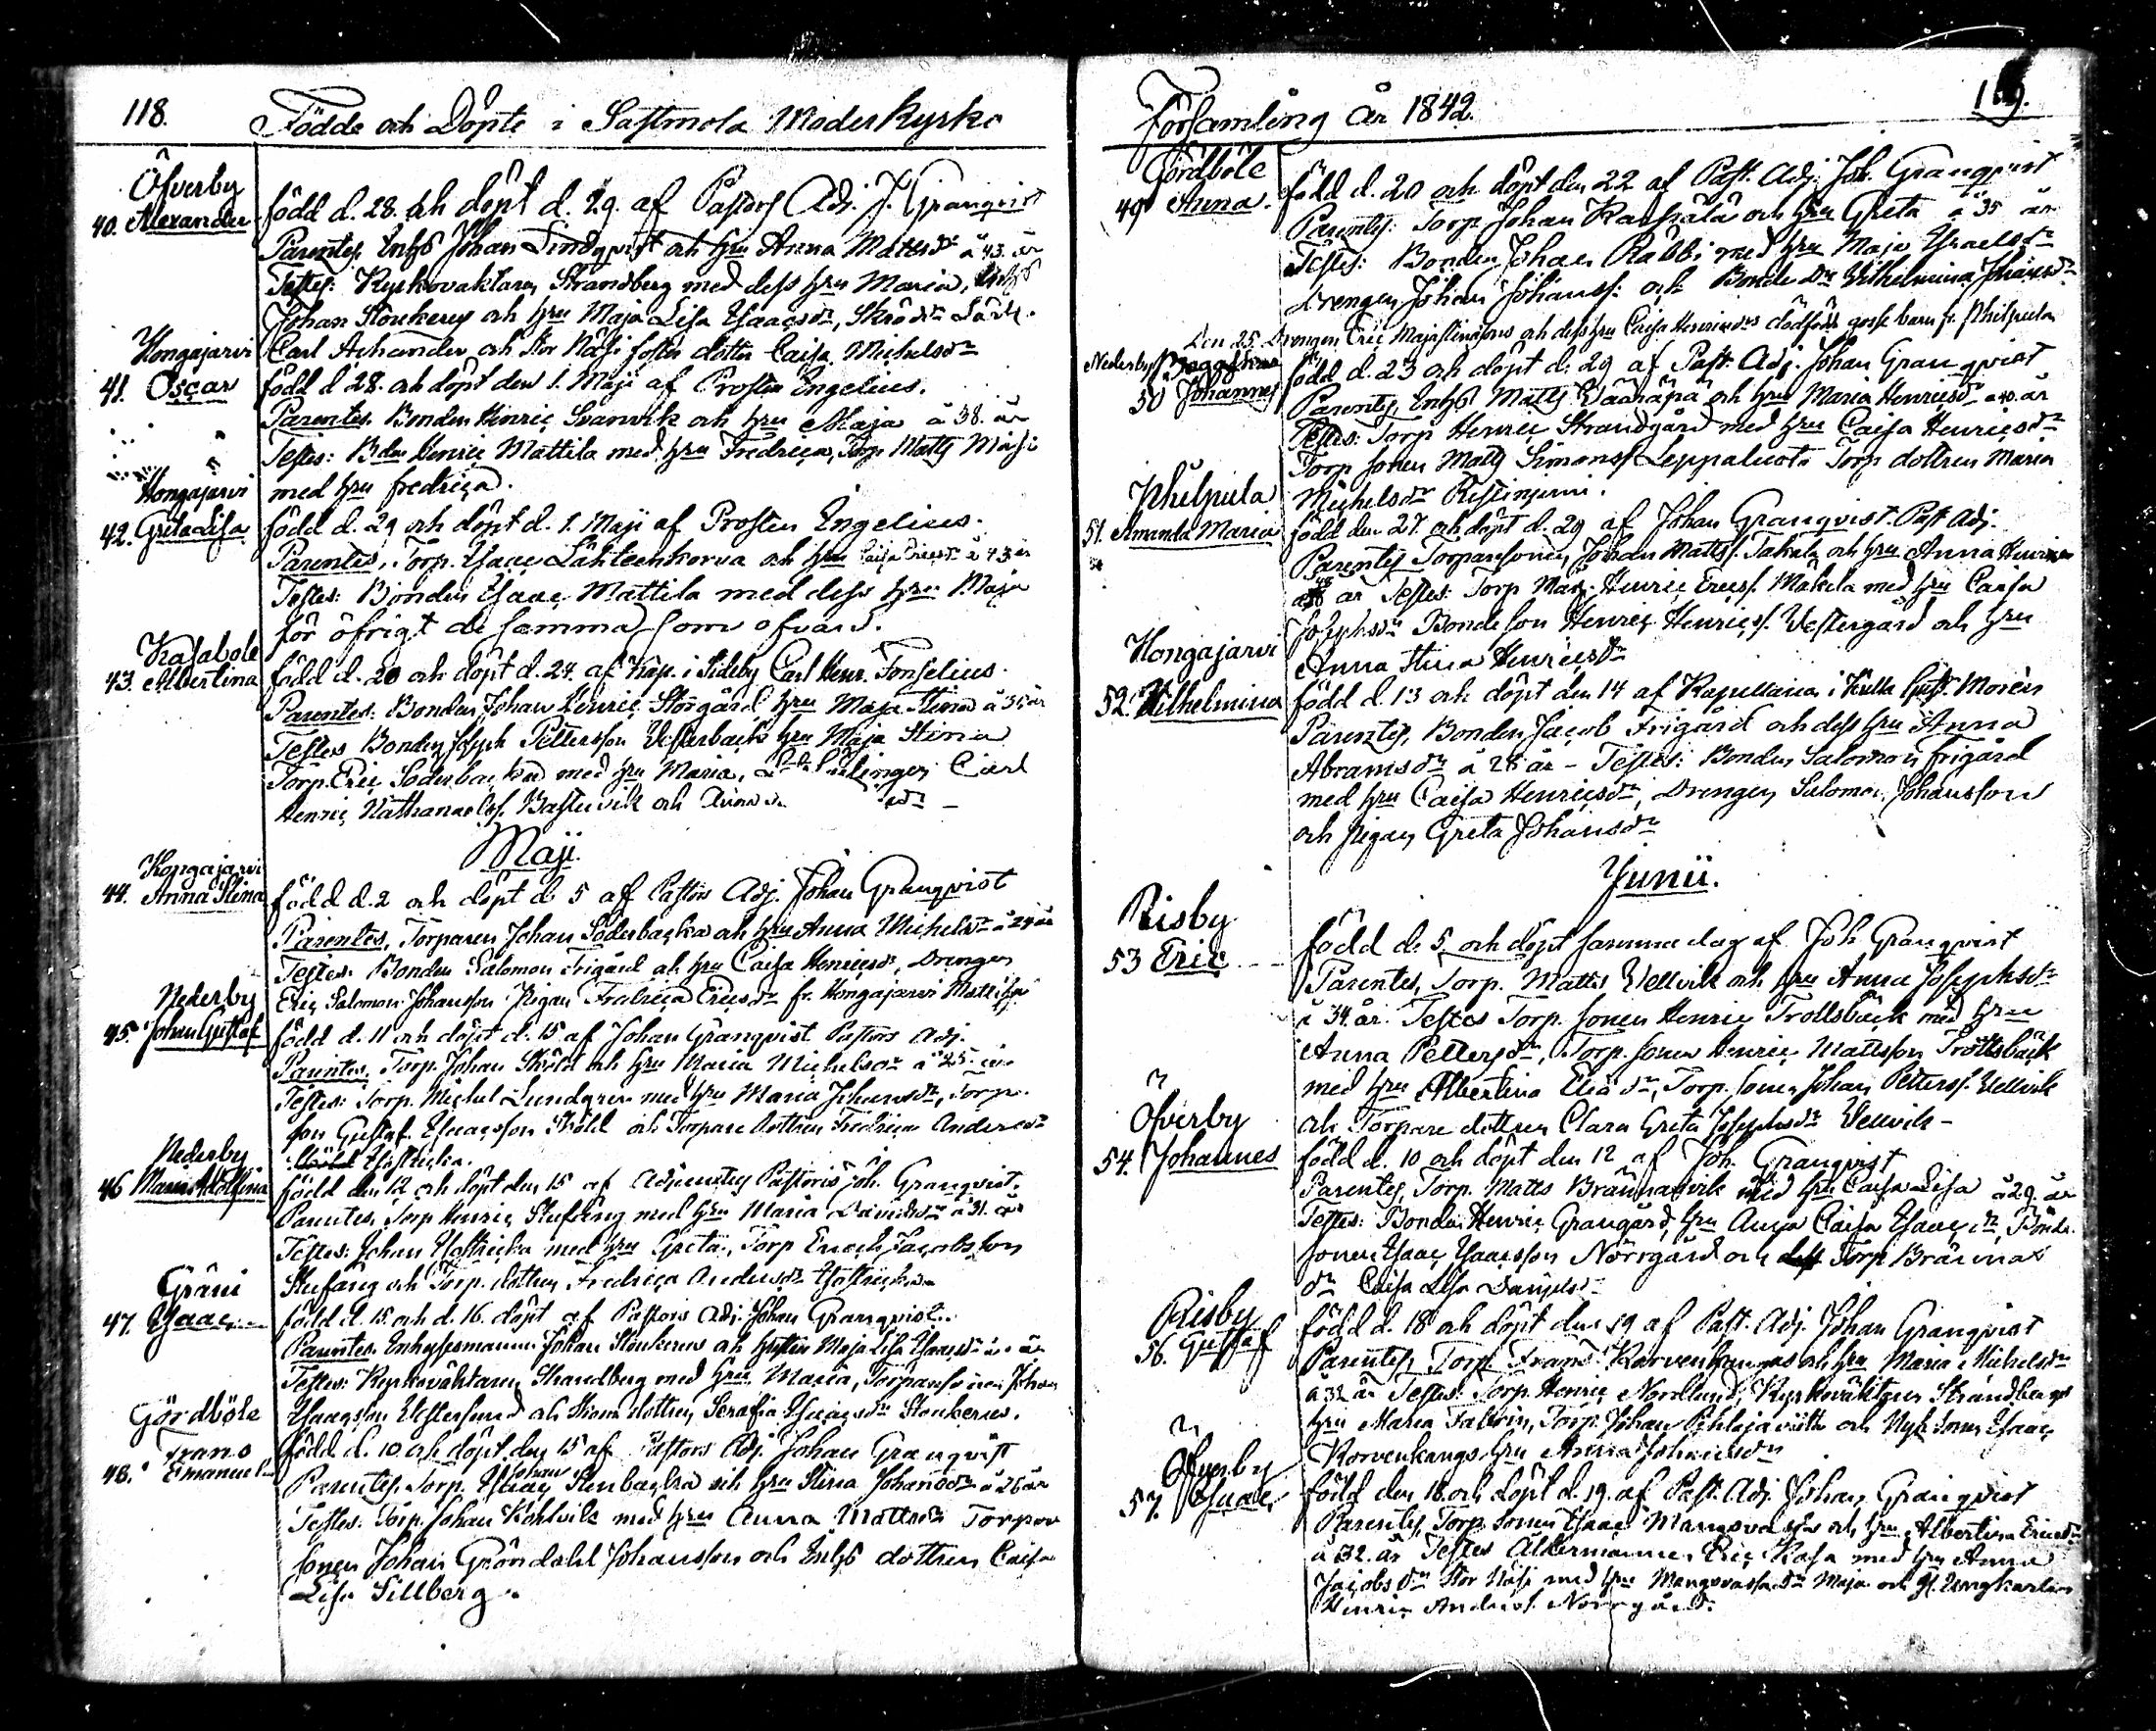 118.
Födde och Döpte i Sastmola Moderkyrko
Öfverby
40. Alexander. född d. 28. och döpt d. 29. af Pastors Adj. J. Granqvist
Parentes, Inhs Johan Lindqvist och hru Anna Mattsdr à 43. år
Testes: Kyrkovaktaren Strandberg med dess hru Maria,
Johan Stenkerus och hru Maja Lisa Isaacsdr,
Carl Achander och Stor Näsi foster dotter Caisa Michelsdr
Hongajarvi
41. Oscar född d. 28. och döpt den 1. Maji af Prosten Engelius.
Parentes. Bonden Henric Svanvik och hru Maja à 38. år
Testes: Bden Henric Mattila med hru Fredrica, Torp. Matts
med hru fredrica.
Hongajarvi
42. Greta Lisa född d. 29 och döpt d. 1. Maji af Prosten Engelius.
Parentes, Torp. Isaac Lähteenkorva och hru Caisa Ericsdr à 43 år
Testes: Bonden Isaac Mattila med dess hru Maja
för öfrigt de samma som ofvan.
Kasabole
43. Albertina född d. 20 och döpt d. 24. af Kap. i Sideby Carl Henr. Fonselius.
Parentes: Bonden Johan Henric Storgård hru Maja Stina à 35 år
Testes Bonden Joseph Pettersson Vesterback hru Maja Stina
Torp. Eric Söderbacka med hru Maria, Ynglingen Carl
Henric Nathanaelss. Bastuvik och
Maji.
Hongajarvi
44. Anna Stina född d. 2 och döpt d. 5 af Pastors Adj. Johan Granqvist
Parentes, Torparen Johan Söderbacka och hru Anna Michelsdr à 24 år
Testes: Bonden Salomon Frigård och hru Caisa Henricsdr, Drengen
Eric Salomon Johansson Pigan Fredrica Ericsdr fr. Hongajarvi Mattila
Nederby
45. Johan Gustaf född d. 11 och döpt d. 15 af Johan Granqvist Pastors Adj.
Parentes, Torp. Johan Sköld och hru Maria Michelsdr à 25 år
Testes: Torp. Michel Lundgren med hru Maria Johansdr, Torp.
son Gustaf Isaacsson Sköld och Torpare dottren Fredrica Andersdr
Nederby
46 Maria Adolfina född den 12 och döpt den 15 af Adjuncten Pastoris Joh. Granqvist.
Parentes, Torp Henric Stufäng med hru Maria Davidsdr à 31. år
Testes: Johan Ysstricka med hru Greta, Torp Enoch Jacobsson
Stufäng och Torp. dottren Fredrica Andersdr
Gräni
47. Isaac född d. 15. och d. 16. döpt af Pastors Adj. Johan Granqvist.
Parentes. Enhyssesmannen Johan Stenkerus och hustru Maja Lisa Isaacsdr
Testes: Kyrkoväktaren Strandberg med hru Maria, Torparesonen Johan
Isaacsson Vestersund och dottren Serafia Isaacsdr Stenkerus.
Gördböle
Frans
48. Emanuel född d. 10 och döpt den 15 af Pastors Adj. Johan Granqvist
Parentes. Torp. Johan Stenbacka och hru Stina Johansdr à 26 år
Testes. Torp. Johan Kohlvik med hru Anna Mattsdr Torpar
sonen Johan Gröndahl Johansson och Inhs dottren Caisa
Lisa Sillberg.
119.
Församling år 1842.
Gördböle
49 Anna. född d. 20 och döpt den 22 af Past. Adj. Joh. Granqvist
Parentes. Torp. Johan och hru Greta à 35 år
Testes: Bonden Johan Rabbi med hru Maja Israelsdr
drengen Johan Johanss. och Bonde dr Vilhelmina Johansdr
Den 25. Drengen Eric och dess hru Caisa Henricsdrs dödfödt gosse barn fr. Philpula
Nederby
50 Johannes född d. 23 och döpt d. 29 af Past. Adj. Johan Granqvist
Parentes, Inhs Matts och hru Maria Henricsdr à 40. år
Testes: Torp Henric Strandgård med hru Caisa Henricsdr
Torp sonen Matts Simonss. Leppaluoto Torp dottren Maria
Michelsdr Ristinjemi.
Philpula
51. Amanda Maria född den 27. och döpt d. 29 af Johan Granqvist. Past Adj.
Parentes Torparesonen Johan Mattss. Takala och hru Anna Henricsdr
år Testes: Torp Henric Ericss. Mäkela med hru Caisa
Josephsdr Bondeson Henric Henricss. Vestergård och hru
Anna Stina Henricsdr
Hongajarvi
52. Vilhelmina född d. 13 och döpt den 14 af Kapellanen i Gust. Morén
Parentes, Bonden Jacob Frigård och dess hru Anna
Abramsdr à 28 år – Testes: Bonden Salomon Frigård
med hru Caisa Henricsdr, Drengen Salomon Johansson
och pigan Greta Johansdr
Junii.
Risby
53 Eric född d. 5. och döpt samma dag af Joh. Granqvist
Parentes, Torp. Matts Vellvik och hru Anna Josephsdr
à 34. år. Testes Torp. sonen Henric Trollsbäck med hru
Anna Pettersdr, Torp. sonen Henric Mattsson Trollsbäck
med hru Albertina Eliädr, Torp. sonen Johan Petterss. Vellvik
och Torpare dottren Clara Greta Josephsdr Vellvik –
Öfverby
54. Johannes född d. 10 och döpt den 12 af Joh. Granqvist
Parentes, Torp. Matts Brännarvik med hru Caisa Lisa à 29. år
Testes: Bonden Henric Grangård, hru Caisa Isaacsdr, Bonde
sonen Isaac Isaacsson Norrgård och Torp Brännar
dr Caisa Lisa Danielsdr
Risby
56. Gustaf född d. 18 och döpt den 19 af Past. Adj. Johan Granqvist
Parentes, Torp. Frans Korvenkangas och hru Maria Michelsdr
à 32 år Testes: Torp. Henric Nordlund, Kyrkoväktaren Strandbergs
hru Maria Torp. Johan och Nyb. sonen Isaac
Korvenkangs hru Anna Johansdr
Öfverby
57. Isaac född den 18. och döpt d. 19. af Past. Adj. Johan Granqvist
Parentes, Torp. sonen Isaac och hru Albertina Ericsdr
à 32. år Testes Åldermannen Eric Kasa med hru Anna
Jacobsdr Stor Näsi med hru Maja och
Henric Anderss. Norrgård.